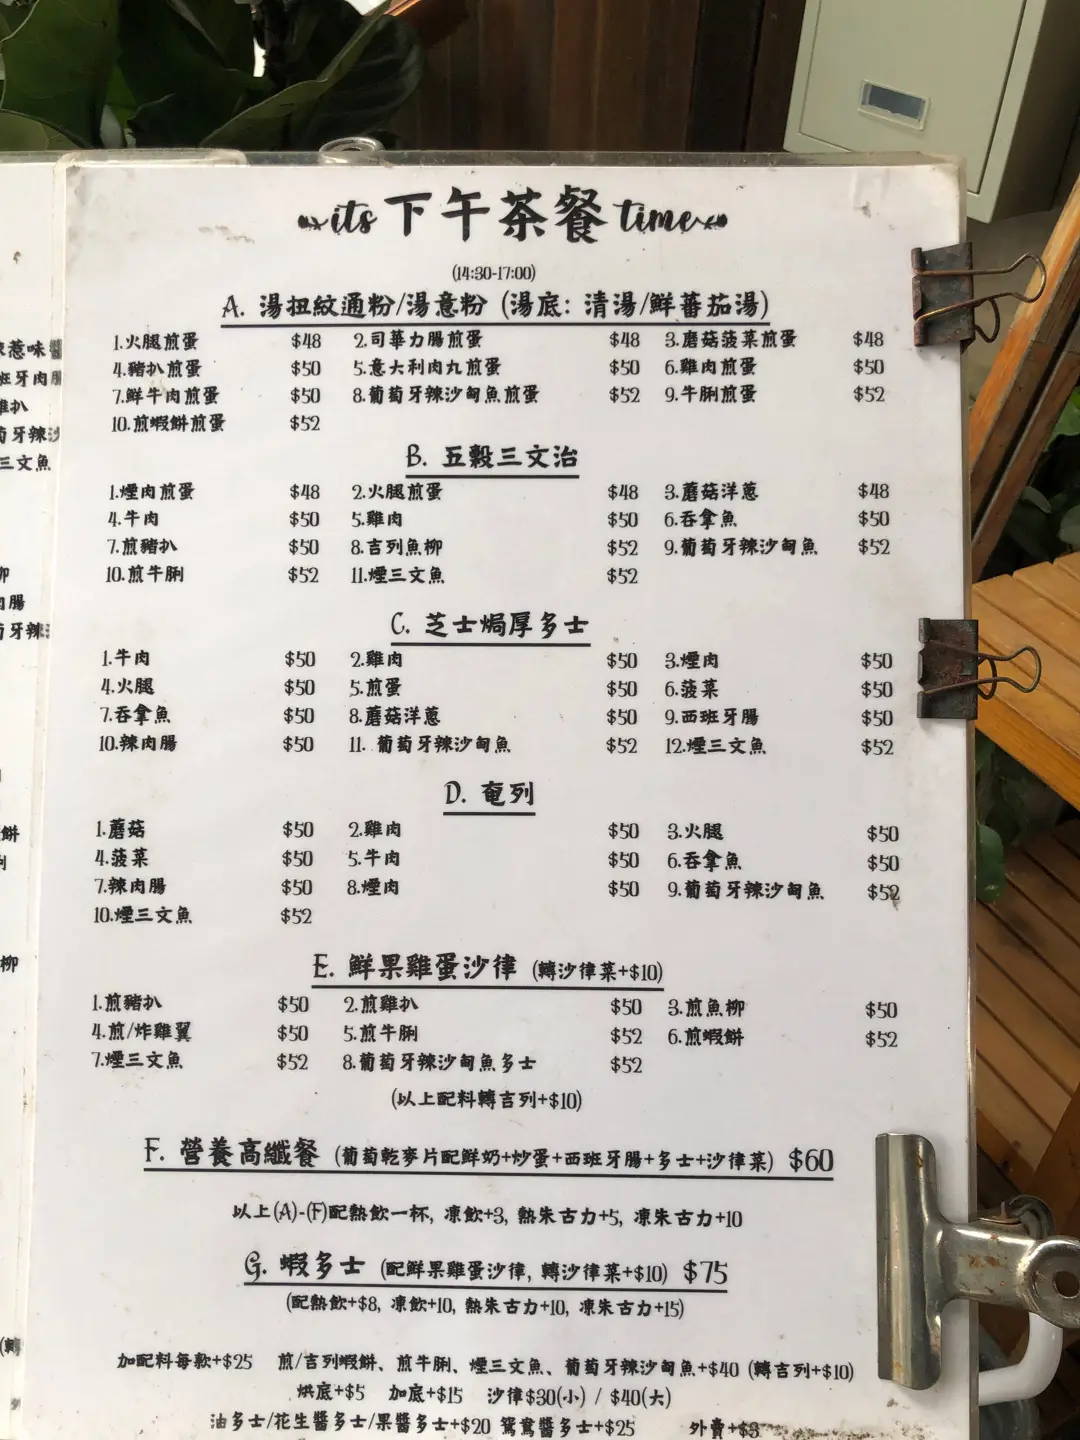 its 下午茶餐 time
(14:30-17:00)
A. 湯扭紋通粉/湯意粉 (湯底: 清湯/鮮蕃茄湯)
1.火腿煎蛋 $48 2.司華力腸煎蛋 $48 3.蘑菇菠菜煎蛋 $48
4.豬扒煎蛋 $50 5.意大利肉丸煎蛋 $50 6.雞肉煎蛋 $50
7.鮮牛肉煎蛋 $50 8.葡萄牙辣沙甸魚煎蛋 $52 9.牛脷煎蛋 $52
10.煎蝦餅煎蛋 $52
B. 五穀三文治
1.煙肉煎蛋 $48 2.火腿煎蛋 $48 3.蘑菇洋蔥 $48
4.牛肉 $50 5.雞肉 $50 6.吞拿魚 $50
7.煎豬扒 $50 8.吉列魚柳 $52 9.葡萄牙辣沙甸魚 $52
10.煎牛脷 $52 11.煙三文魚 $52
C. 芝士焗厚多士
1.牛肉 $50 2.雞肉 $50 3.煙肉 $50
4.火腿 $50 5.煎蛋 $50 6.菠菜 $50
7.吞拿魚 $50 8.蘑菇洋蔥 $50 9.西班牙腸 $50
10.辣肉腸 $50 11. 葡萄牙辣沙甸魚 $52 12.煙三文魚 $52
D. 奄列
1.蘑菇 $50 2.雞肉 $50 3.火腿 $50
4.菠菜 $50 5.牛肉 $50 6.吞拿魚 $50
7.辣肉腸 $50 8.煙肉 $50 9.葡萄牙辣沙甸魚 $52
10.煙三文魚 $52
E. 鮮果雞蛋沙律 (轉沙律菜+$10)
1.煎豬扒 $50 2.煎雞扒 $50 3.煎魚柳 $50
4.煎/炸雞翼 $50 5.煎牛脷 $52 6.煎蝦餅 $52
7.煙三文魚 $52 8.葡萄牙辣沙甸魚多士 $52
(以上配料轉吉列+$10)
F. 營養高纖餐 (葡萄乾麥片配鮮奶+炒蛋+西班牙腸+多士+沙律菜) $60
以上(A)-(F)配熱飲一杯, 凍飲+3, 熱朱古力+5, 凍朱古力+10
G. 蝦多士 (配鮮果雞蛋沙律, 轉沙律菜+$10) $75
(配熱飲+$8, 凍飲+10, 熱朱古力+10, 凍朱古力+15)
加配料每款+$25 煎/吉列蝦餅、煎牛脷、煙三文魚、葡萄牙辣沙甸魚+$40 (轉吉列+$10)
烘底+$5 加底+$15 沙律$30(小) / $40(大)
油多士/花生醬多士/果醬多士+$20 鴛鴦醬多士+$25 外賣+$3